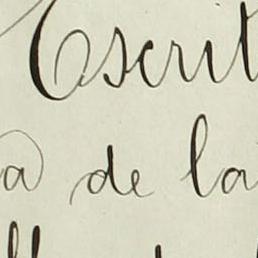 Escrit
a de la